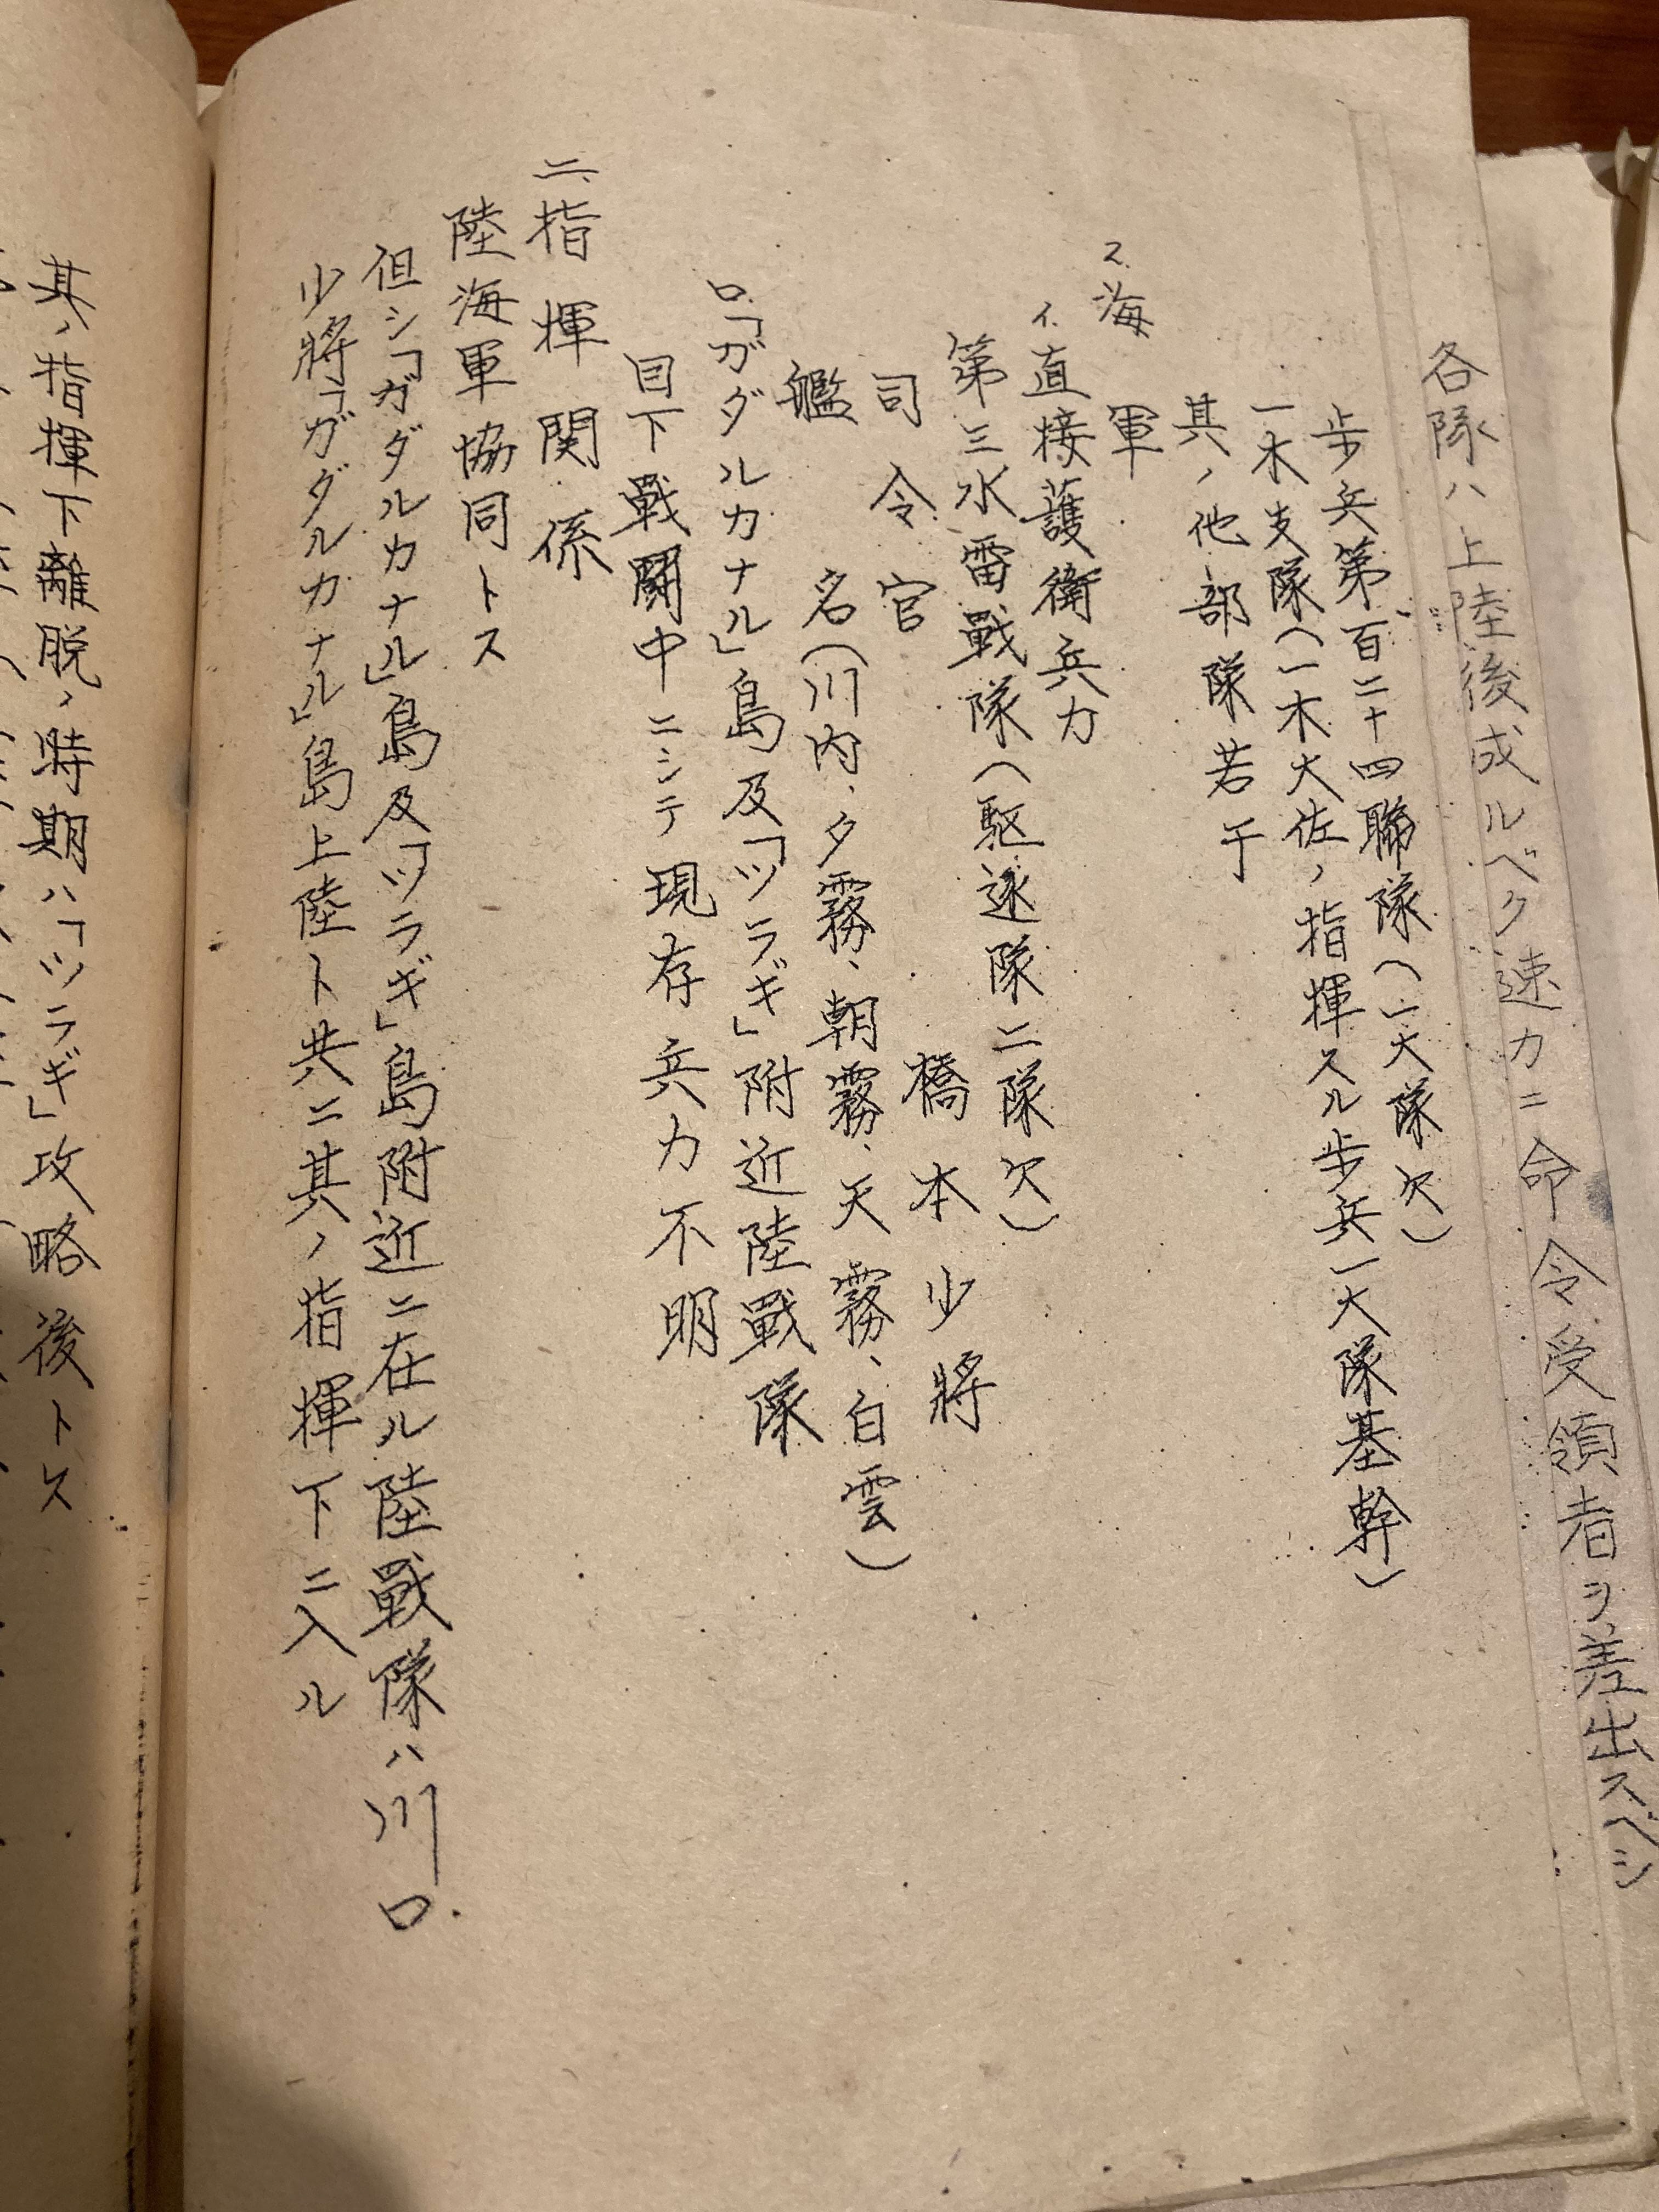 各隊ハ上陸後成ルベク速カニ命令受領者ヲ差出スベシ
歩兵第百二十四聯隊(一大隊欠)
一木支隊(一木大佐ノ指揮スル歩兵一大隊基幹)
其ノ他部隊若干
2.海軍
イ.直接護衛兵力
第三水雷戦隊(駆逐隊二隊欠)
司令官 橋本少將
艦名(川内、夕霧、朝霧、天霧、白雲)
ロ.「ガダルカナル」島及「ツラギ」附近陸戰隊
目下戰鬪中ニシテ現存兵力不明
二、指揮関係
陸海軍協同トス
但シ「ガダルカナル」島及「ツラギ」島附近ニ在ル陸戰隊ハ川口
少將「ガダルカナル」島上陸ト共ニ其ノ指揮下ニ入ル
其ノ指揮下離脱ノ時期ハ「ツラギ」攻略後トス